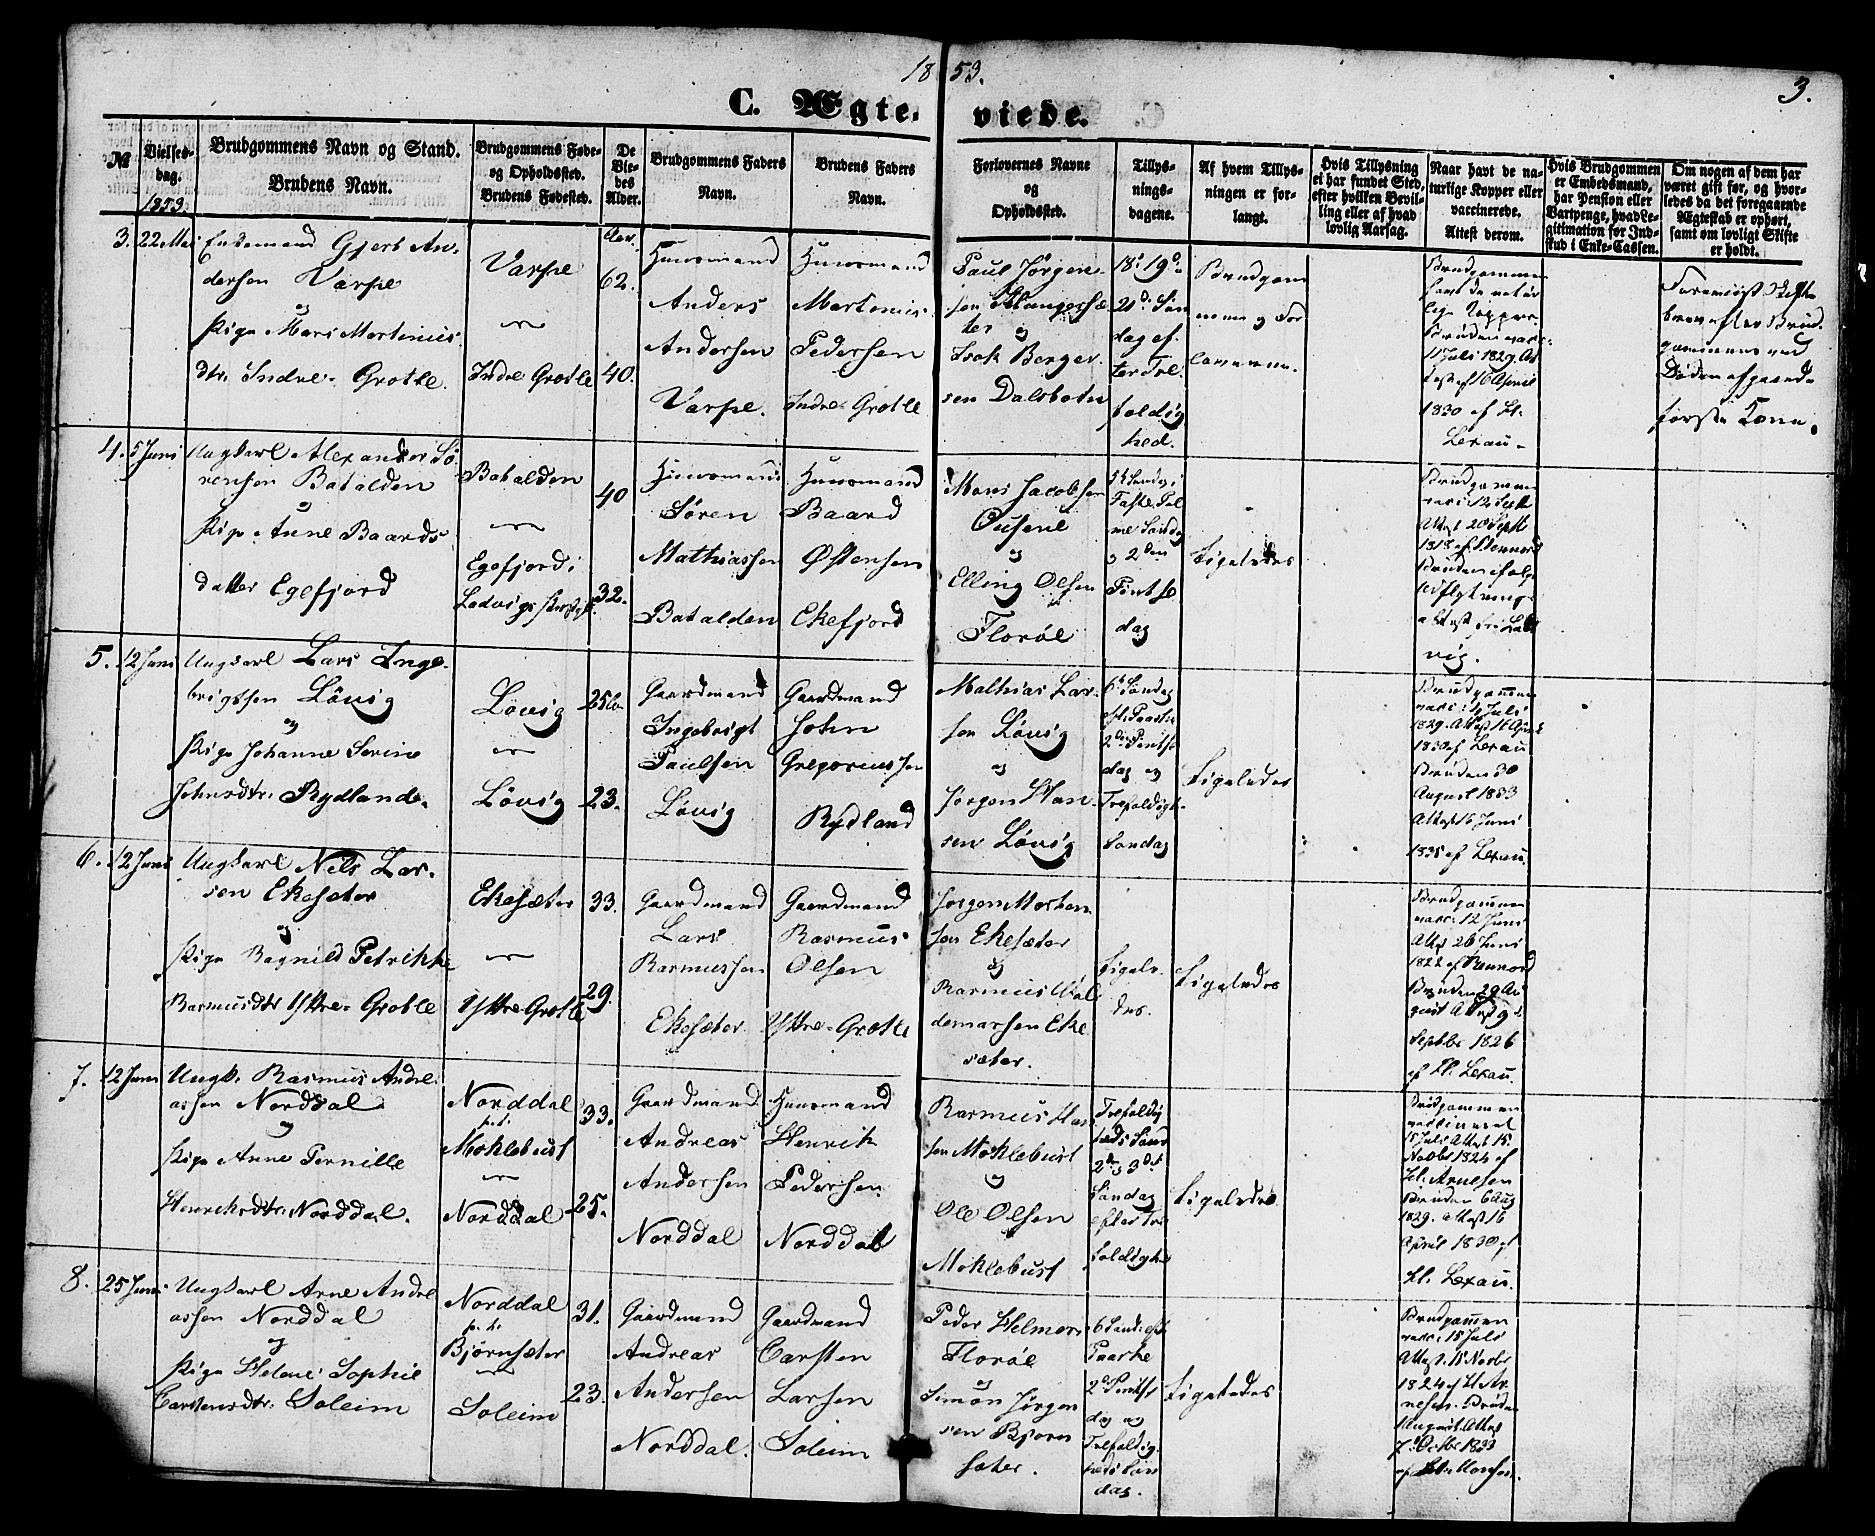 1853.
3.
C. Ægte- viede.
№
Vielses-
dag.
1853.
Brudgommens Navn og Stand.
Brudens Navn.
Brudgommens Føde-
og Opholdssted.
Brudens Fødested.
De
Vie-
des
Alder.
Brudgommens Faders
Navn.
Brudens Faders
Navn.
Forlovernes Navne
og
Opholdssted.
Tillys-
nings-
dagene.
Af hvem Tillys-
ningen er for-
langt.
Hvis Tillysning
ei har fundet Sted,
efter hvilken Bevil-
ling eller af hvad
lovlig Aarsag.
Naar havt de na-
turlige Kopper eller
vaccinerede.
Attest derom.
Hvis Brudgommen
er Embedsmand,
har Pension eller
Vartpenge, hvad Le-
gitimation for Ind-
skud i Enke-Cassen.
Om nogen af dem har
været gift før, og hvor-
ledes da det foregaaende
Ægteskab er ophørt,
samt om lovligt Skifte
er holdt.
3.
22 Mai
Enkemand Gjert An-
dersen Varpe
og
Pige Mari Martinus-
dtr. Indre-Grotle.
Varpe
Indre Grotle
62.
40.
Huusmand
Anders
Andersen
Varpe.
Huusmand
Martinus
Pedersen
Indre-Grotle
Paul Jørgen-
sen Haugesæ-
ter
og
Isak Berger-
sen Dalsbotn
18, 19 &
21de Søn
dag ef-
ter Tre-
foldig
hed.
Brudgom
men og For
loverne.
Brudgommen
havt de natur
lige Kopper.
Bruden vacc:
11 Juli 1829. At
test af 16 April
1830 af Kl.
Lexau.
Foreviist Skifte
brev efter Brud-
gommens ved
Døden afgaaede
første Kone.
4.
5 Juni
Ungkarl Alexander Sø-
rensen Batalden
og
Pige Anne Baards
datter Egefjord
Batalden
Egefjord i
Ladvigs Præstgj.
40
32.
Huusmand
Søren
Mathiassen
Batalden
Huusmand
Baard
Østensen
Ekefjord
Mons Jacobsen
Ousene
og
Elling Olsen
Florøe
5te Søndag i
Faste, Pal
me Søndag
og 2den
Pintse
dag
Ligeledes
Brudgommen
vacc: 12 Septb
Attest 20 Septb
1818 af Rennord
Bruden ifølge
udflytnings
attest fra Lad
vig.
5.
12 Juni
Ungkarl Lars Inge-
brigtsen Løvig
og
Pige Johanne Serine
Johnsdtr. Rydland.
Løvig
Løvig
25
23.
Gaardmand
Ingebrigt
Paulsen
Løvig
Gaardmand
John
Gregoriussen
Rydland
Mathias Lar-
sen Løvig
og
Jørgen Han-
sen Løvig
6te Søndag
eft. Paaske
2den Pintse
dag og
Trefoldigh.
Søndag
Ligeledes
Brudgommen
vacc: 4 Juli
1829. Attest 16 April
1830 af Lexau
Bruden 30
August 1833
Attest 16 Juni
1835 af Lexau.
6.
12 Juni
Ungkarl Nels Lar-
sen Ekesæter
og
Pige Ragnild Petrikke
Rasmusdtr Yttre-Grotle
Ekesæter
Yttre-Grotle
33.
29.
Gaardmand
Lars
Rasmussen
Ekesæter
Gaardmand
Rasmus
Olsen
Yttre-Grotle
Jørgen Morten
sen Ekesæter
og
Rasmus Wal
demarsen Eke
sæter.
Ligele-
des.
Ligeledes
Brudgommen
vacc: 12 Juni
Attest 26 Juni
1822 af Rennord
Bruden 29 Au
gust Attest 9
Septbr 1826
af Kl. Lexau.
7.
12 Juni
Ungk. Rasmus Andre-
assen Norddal
og
Pige Anne Pernille
Henriksdtr. Norddal.
Norddal
p.t.
Moklebust
Norddal
33.
25.
Gaardmand
Andreas
Andersen
Norddal
Huusmand
Henrik
Pedersen
Norddal
Rasmus Han
sen Moklebust
og
Ole Olsen
Moklebust
Trefoldig
heds Sønd
2den og 3die
Søndag
efter Tre
foldighed
Ligeledes
Brudgommen
vaccineret
15 Juli Attest 15
Novbr 1824 af
Kl. Arnesen
Bruden 6 Aug
1829. Attest 16
April 1830 af
Kl. Lexau.
8.
25 Juni
Ungkarl Arne Andre
assen Norddal
og
Pige Helene Sophie
Carstensdtr. Soleim
Norddal
p.t.
Bjørnsæter
Soleim
31.
23.
Gaardmand
Andreas
Andersen
Norddal.
Gaardmand
Carsten
Larsen
Soleim
Peder Helmers
Florøe
og
Simon Jørgen
sen Bjørn
sæter.
6 Sønd. eft
Paaske
2den Pintse
dag og
Trefoldig-
heds Søn
dag.
Ligeledes
Brudgommen
vacc: 15 Juli
Attest 15 Novbr
1824 af Kl Ar
nesen. Bruden
August Attest
7 Octbr 1833
af Kl. Monsen.